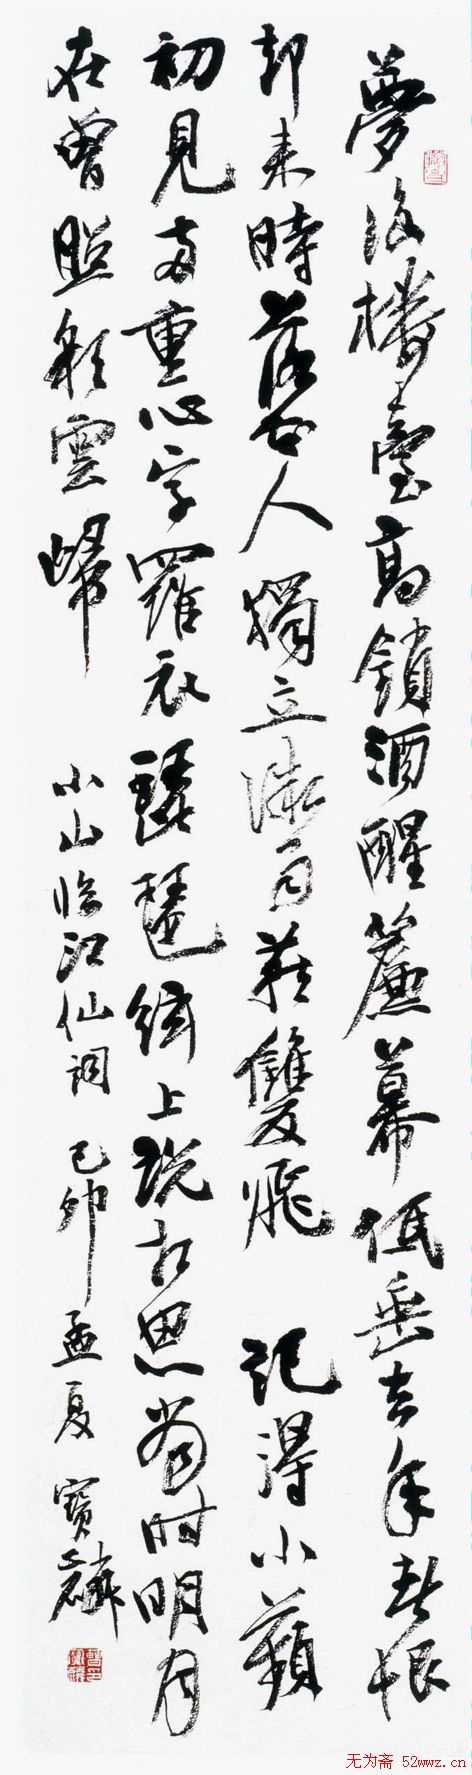 夢後樓臺高鎖酒醒簾幕低垂去年春恨
却来時落花人獨立微雨燕雙飛 記得小蘋
初見兩重心字羅衣琵琶絃上說相思當时明月
在曾照彩雲歸
小山臨江仙詞 己卯孟夏 寶麟
无为斋 52wwz.cn